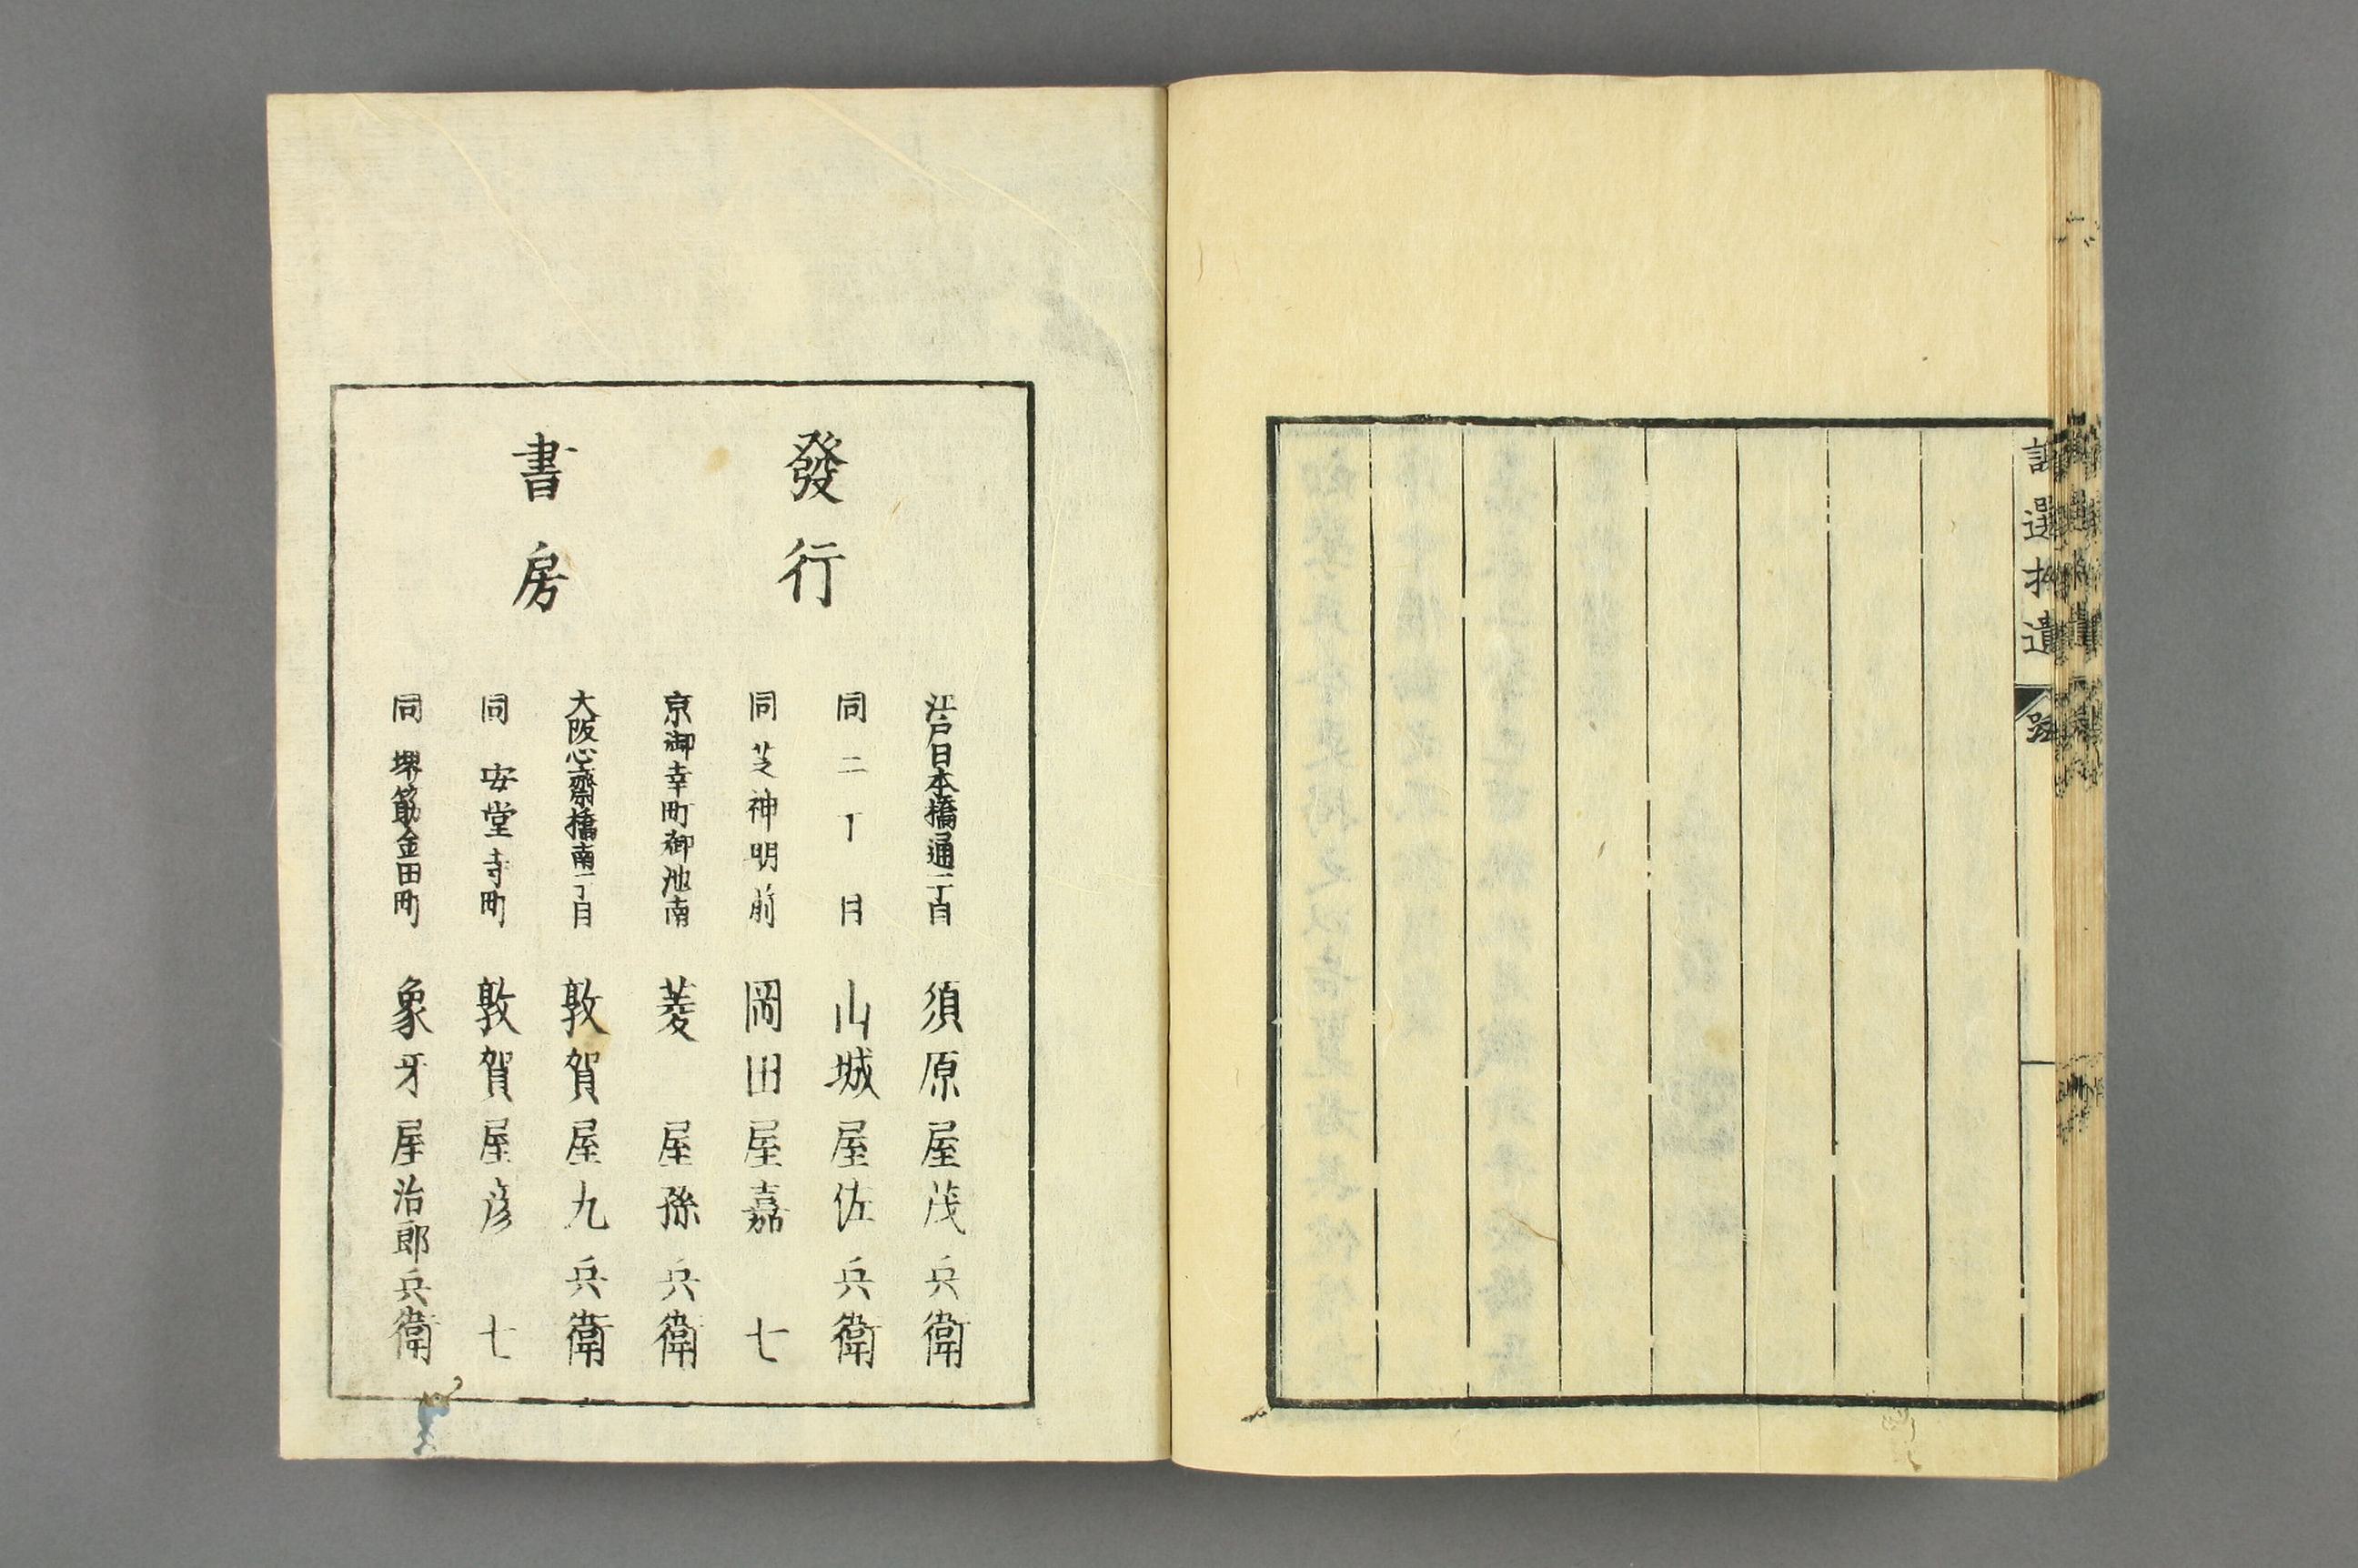 選
遺
發行
書房
江戸日本橋通一丁目 須原屋茂兵衛
同二丁目 山城屋佐兵衛
同芝神明前 岡田屋嘉七
京御幸町御池南 菱屋孫兵衛
大阪心齋橋南一丁目 敦賀屋九兵衛
同安堂寺町 敦賀屋彦七
同堺筋金田町 象牙屋治郎兵衛